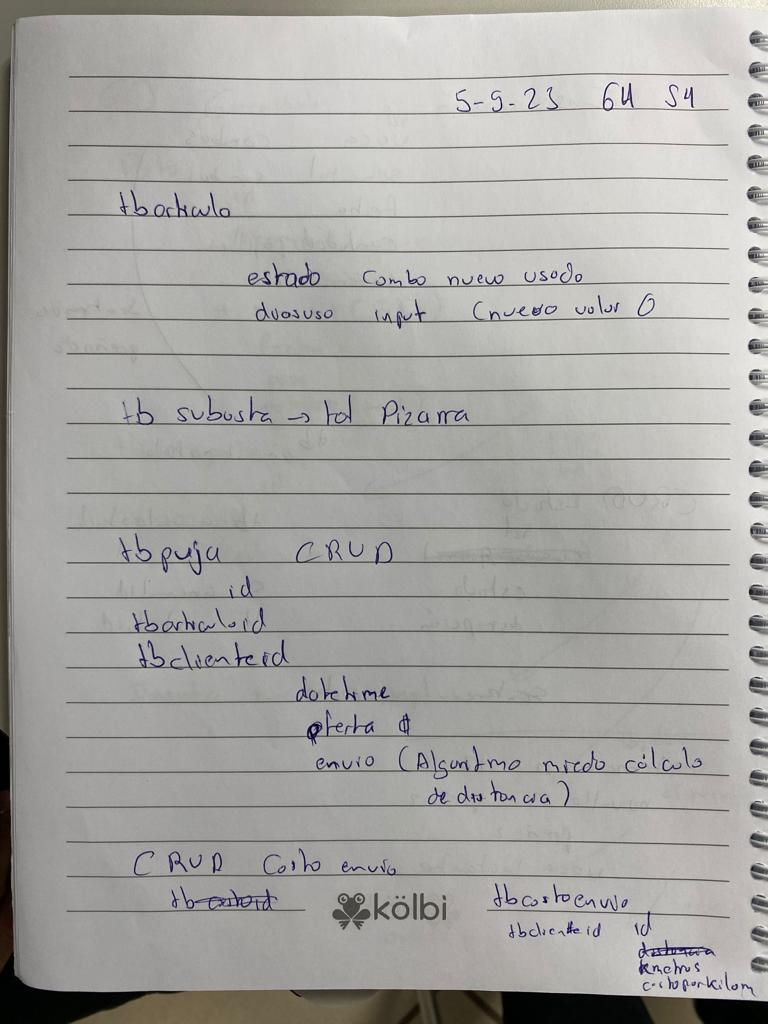 5-9-23 GH S4
tbarticulo
estado combo nuevo usado
diasuso input (nuevo valor 0
tb subasta → tal Pizarra
tbpuja CRUD
id
tbarticuloid
tbclienteid
datetime
oferta ₡
envio (Algoritmo cálculo
de distancia)
CRUD Costo envio
kölbi
tbcostoenvio
tbclienteid id
costoporkilom